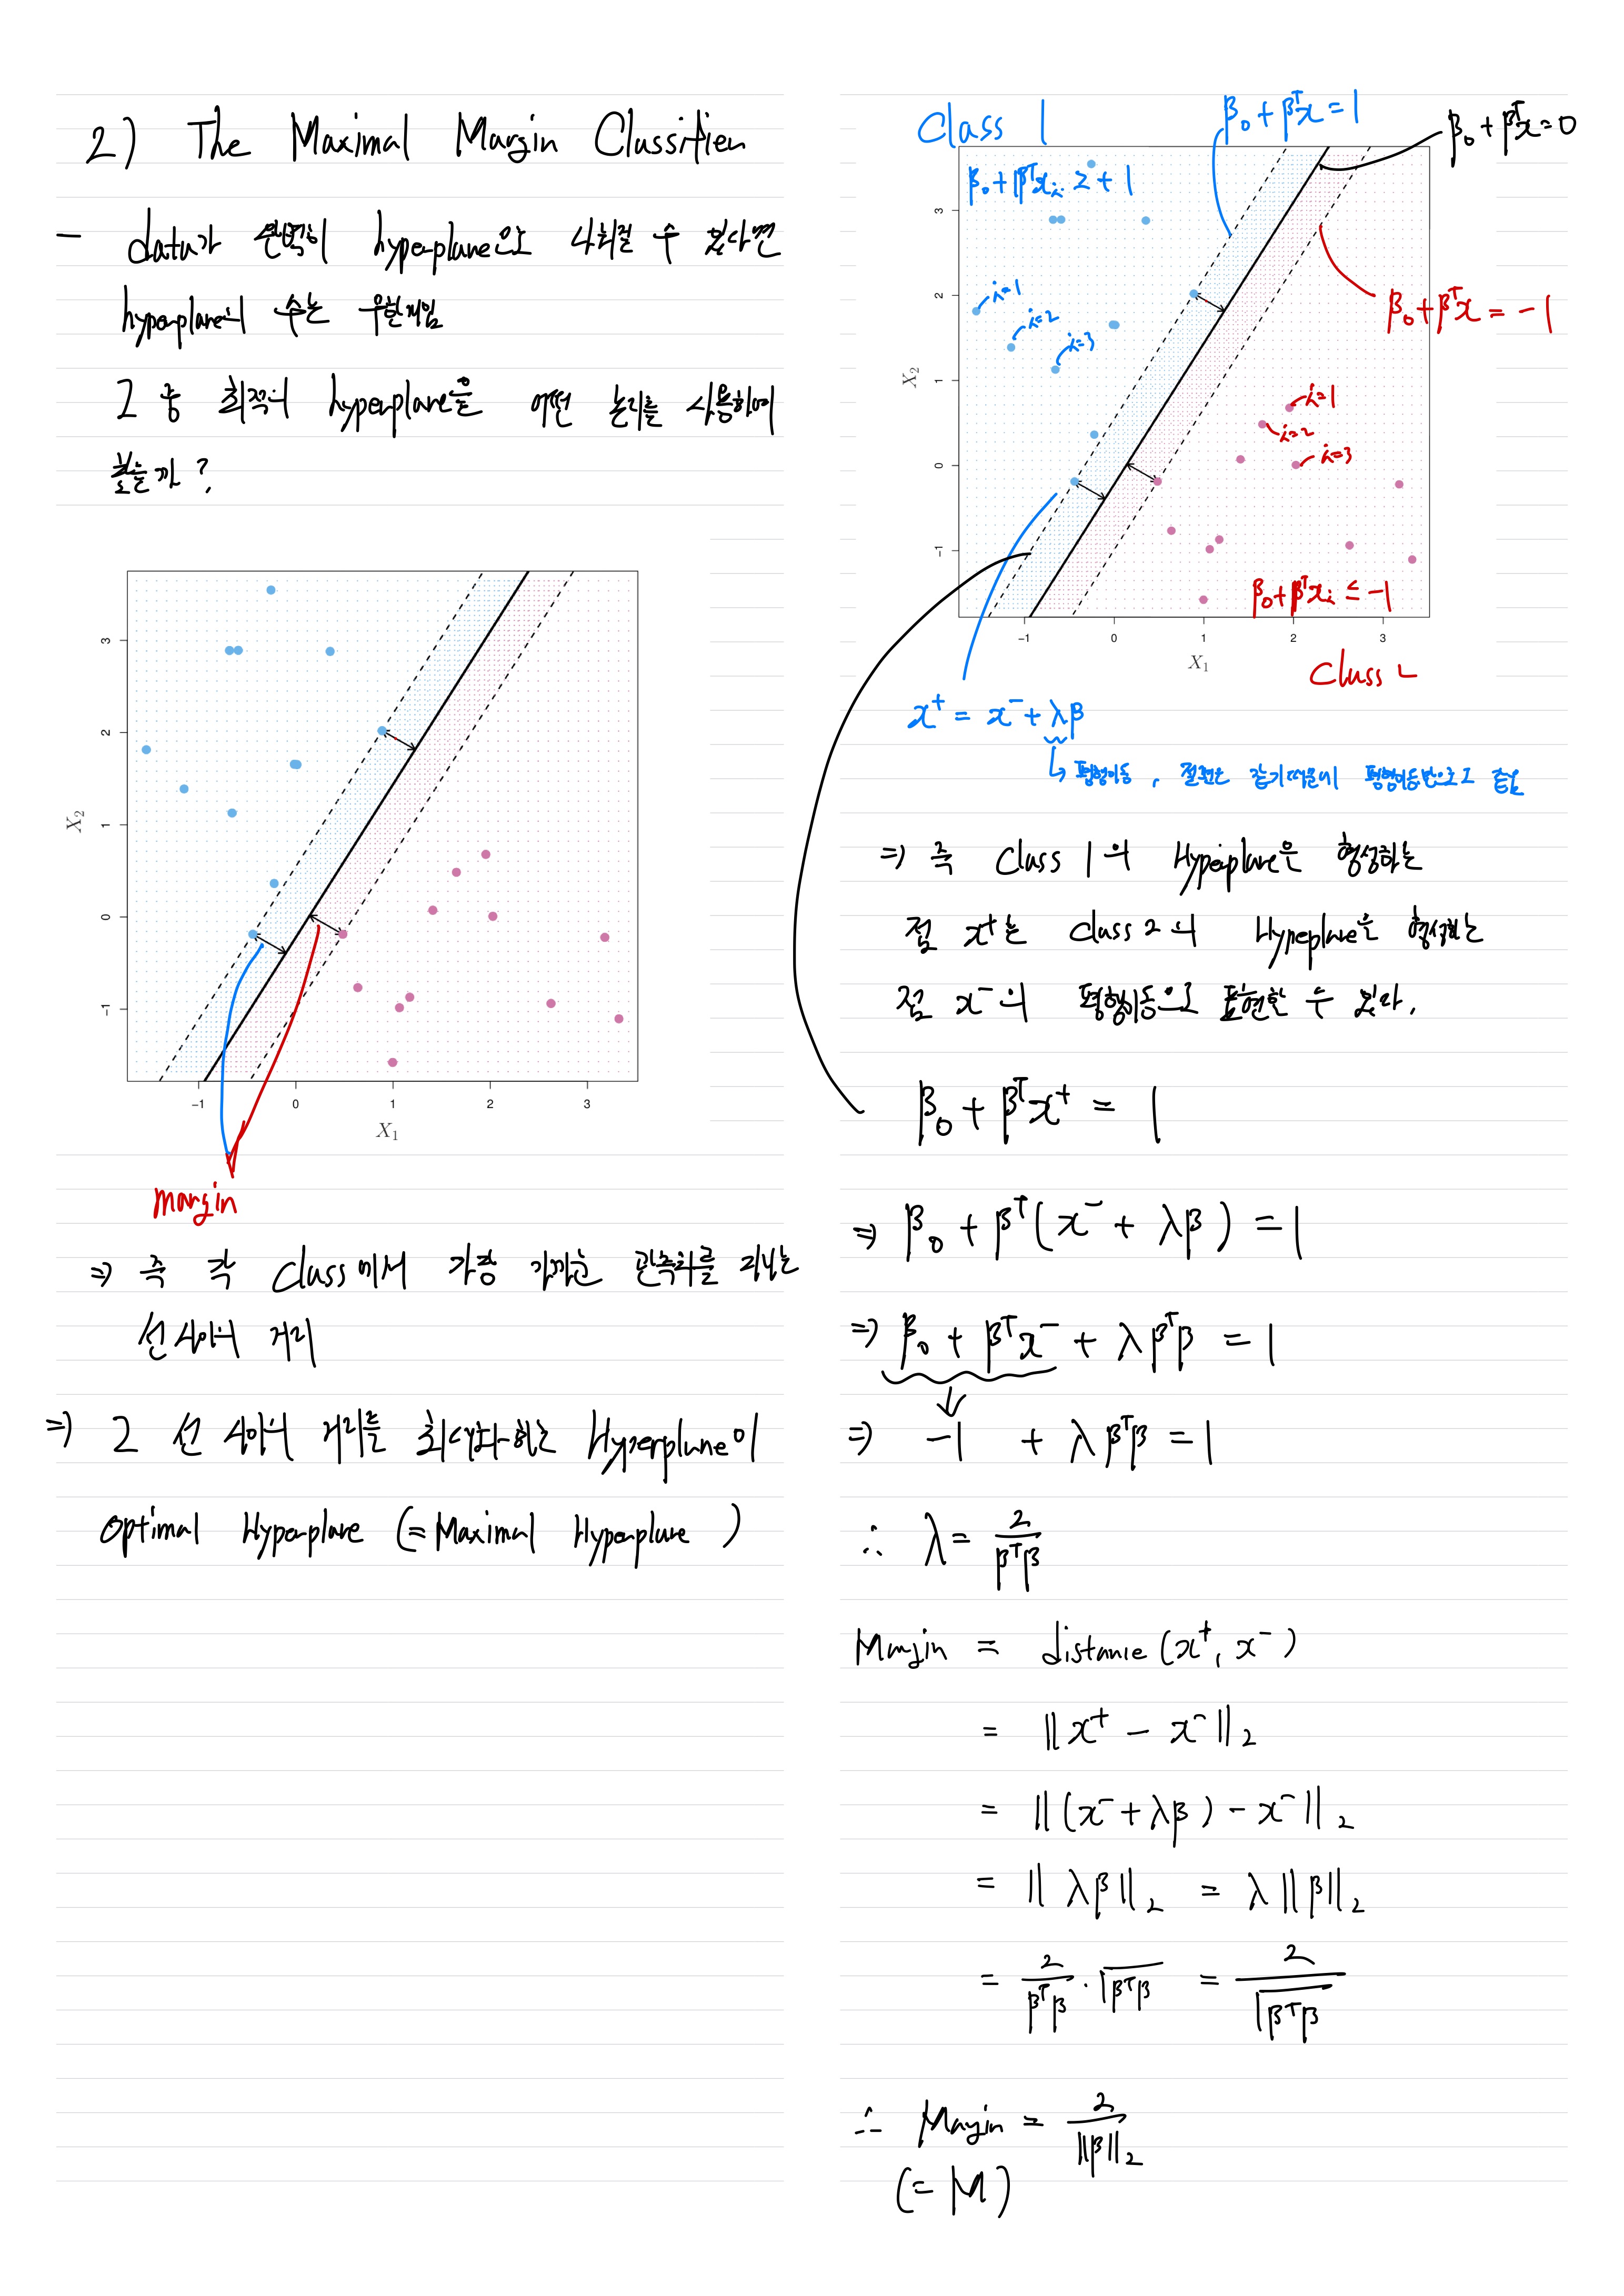 2) The Maximal Margin Classifier
- data가 완벽히 hyperplane으로 나눠질 수 있다면
hyperplane의 수는 무한개임
그 중 최적의 hyperplane을 어떤 논리를 사용하여
찾을까?
X₂
3
2
1
0
-1
-1 0 1 2 3
X₁
margin
⇒ 즉 각 class에서 가장 가까운 관측치를 지나는
선 사이의 거리
⇒ 그 선 사이의 거리를 최대화하는 Hyperplane이
Optimal Hyperplane (= Maximal Hyperplane)
Class 1
β₀ + βᵀx = 1
β₀ + βᵀx = 0
β₀ + βᵀxᵢ ≥ +1
i=1
i=2
i=3
β₀ + βᵀx = -1
i=1
i=2
i=3
β₀ + βᵀxᵢ ≤ -1
X₂
3
2
1
0
-1
-1 0 1 2 3
X₁
Class 2
x⁺ = x⁻ + λβ
↳ 평행이동, 절편은 같기때문에 평행이동만으로
⇒ 즉 Class 1의 Hyperplane을 형성하는
점 x⁺는 class 2의 Hyperplane을 형성하는
점 x⁻의 평행이동으로 표현할 수 있다.
β₀ + βᵀx⁺ = 1
⇒ β₀ + βᵀ(x⁻ + λβ) = 1
⇒ β₀ + βᵀx⁻ + λβᵀβ = 1
⇒ -1 + λβᵀβ = 1
∴ λ = 2/βᵀβ
Margin = distance(x⁺, x⁻)
= ||x⁺ - x⁻||₂
= ||(x⁻ + λβ) - x⁻||₂
= ||λβ||₂ = λ||β||₂
= 2/βᵀβ · √βᵀβ = 2/√βᵀβ
∴ Margin = 2/||β||₂
(= M)